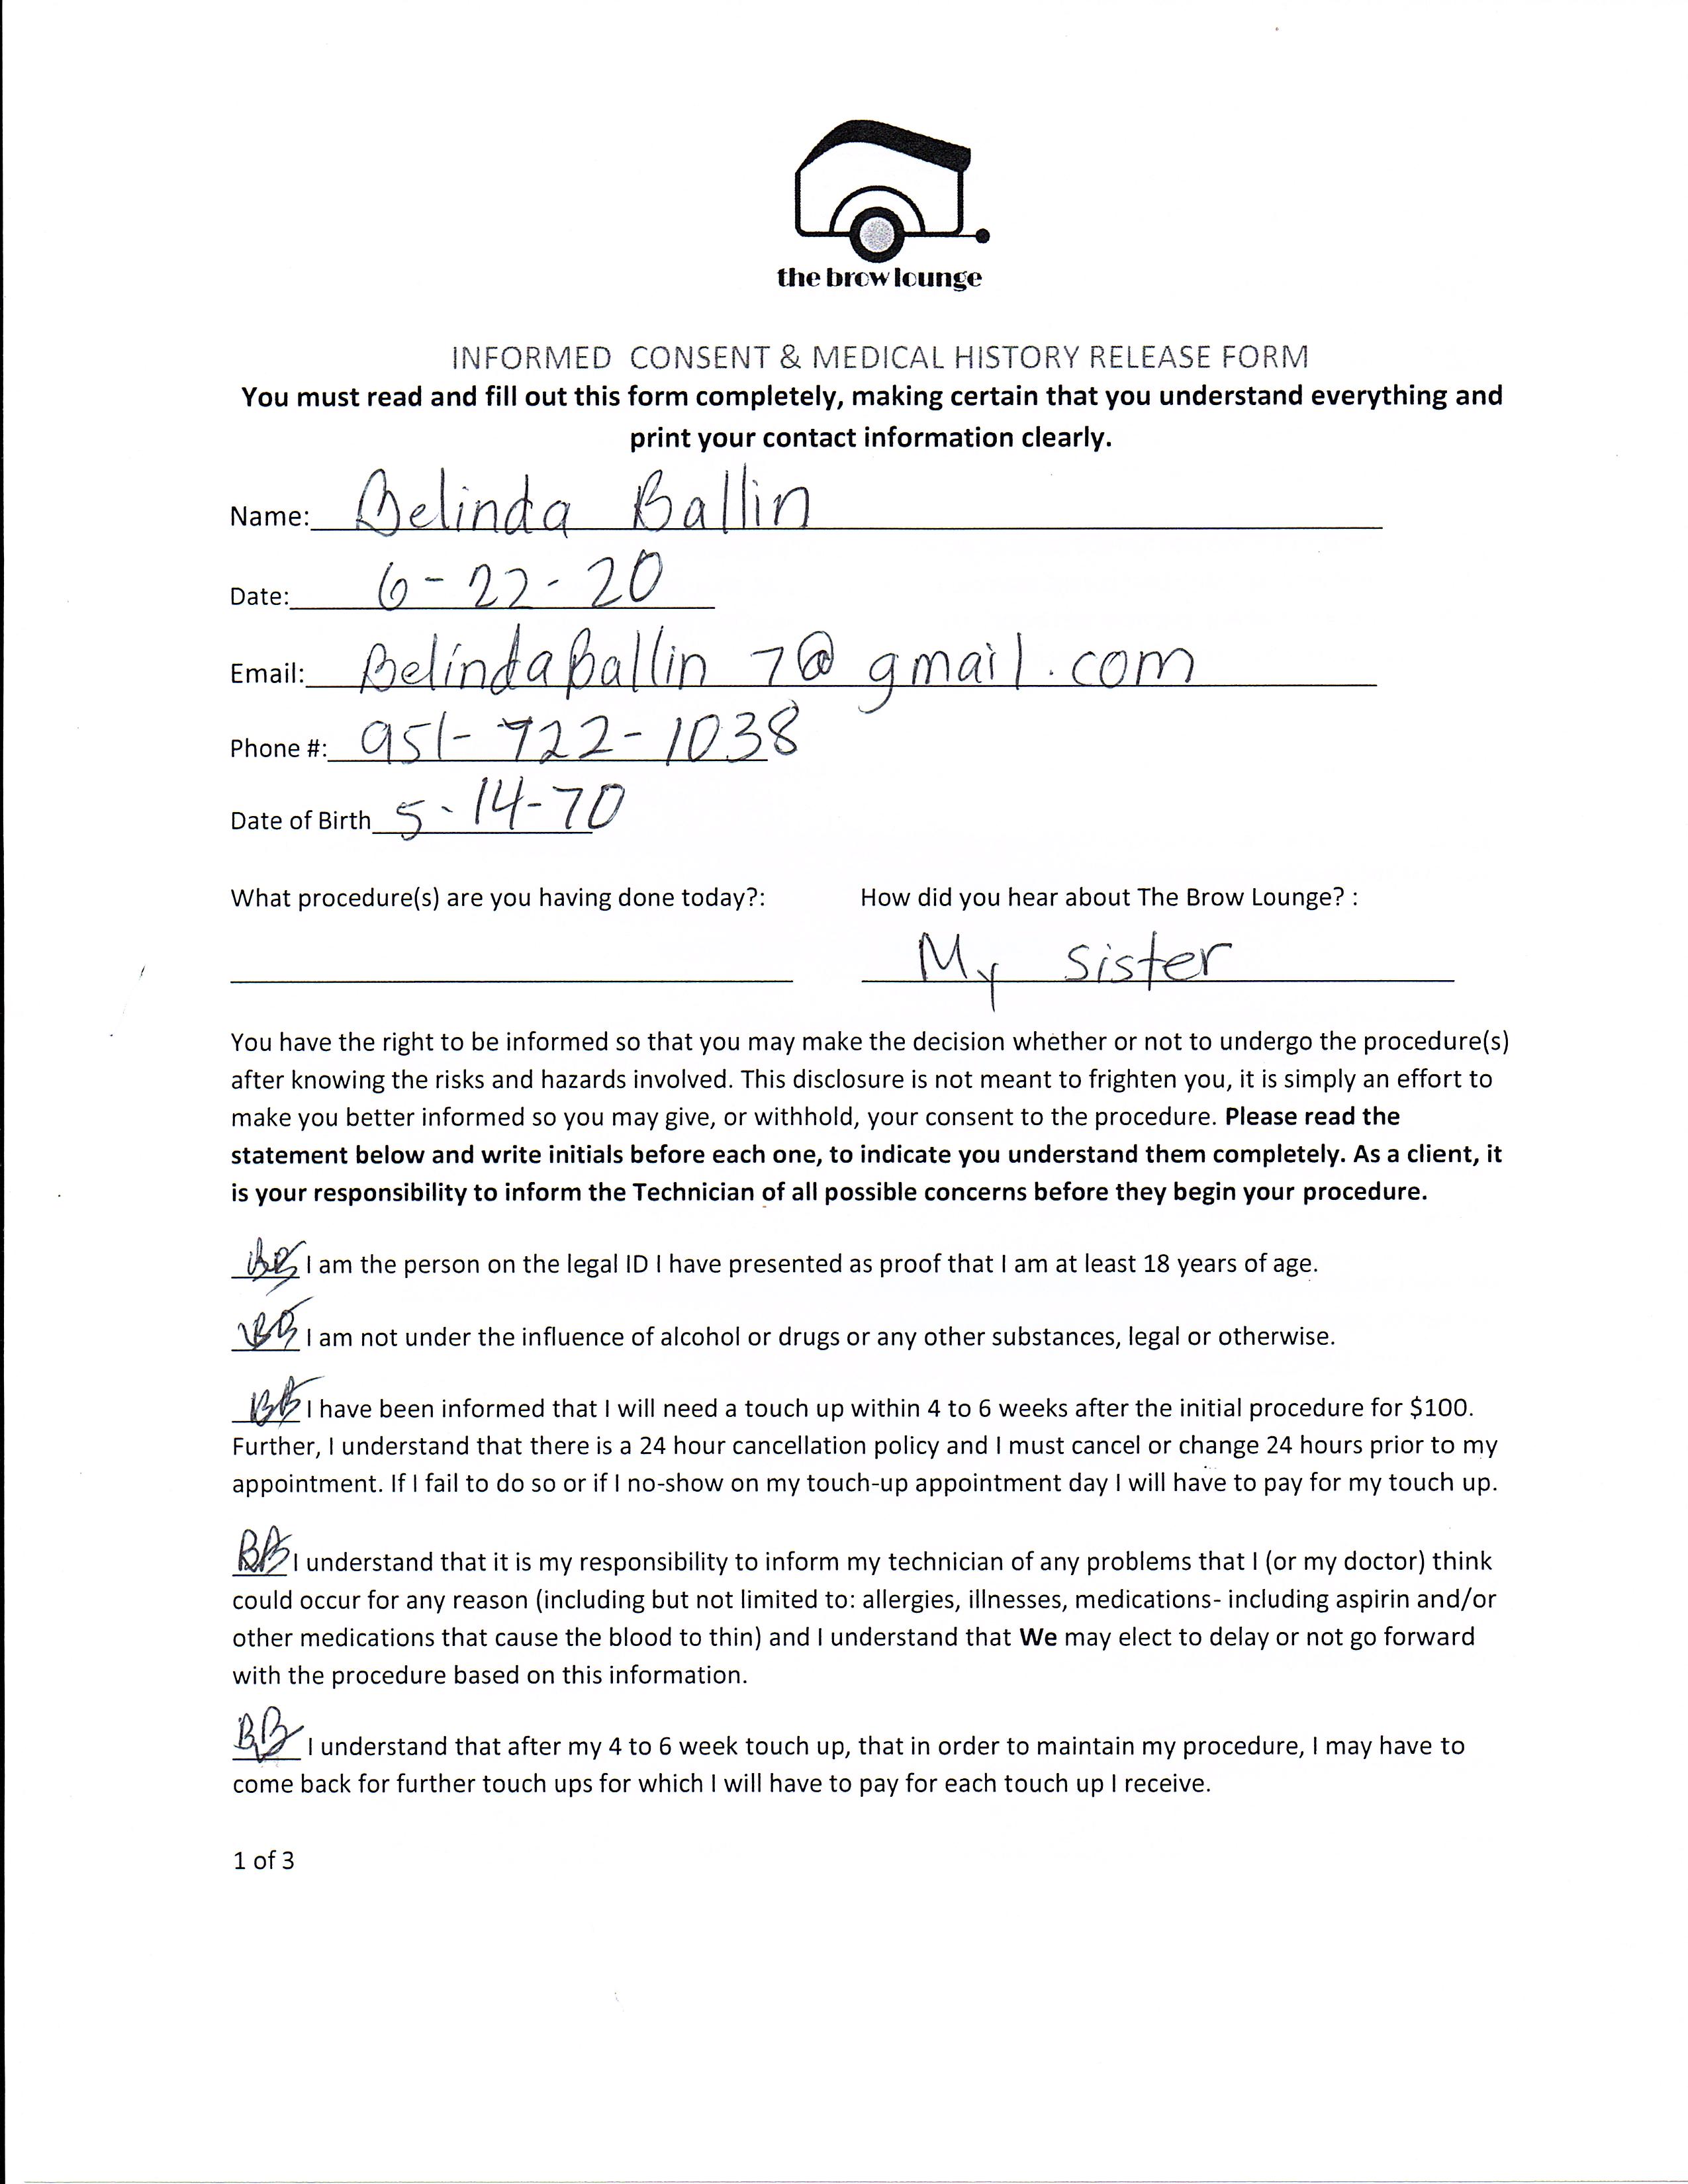 the brow lounge
INFORMED CONSENT & MEDICAL HISTORY RELEASE FORM
You must read and fill out this form completely, making certain that you understand everything and
print your contact information clearly.
Name: Belinda Ballin
Date: 6-22-20
Email: BelindaBallin7@gmail.com
Phone #: 951-722-1038
Date of Birth 5-14-70
What procedure(s) are you having done today?: How did you hear about The Brow Lounge? :
My sister
You have the right to be informed so that you may make the decision whether or not to undergo the procedure(s)
after knowing the risks and hazards involved. This disclosure is not meant to frighten you, it is simply an effort to
make you better informed so you may give, or withhold, your consent to the procedure. Please read the
statement below and write initials before each one, to indicate you understand them completely. As a client, it
is your responsibility to inform the Technician of all possible concerns before they begin your procedure.
BB I am the person on the legal ID I have presented as proof that I am at least 18 years of age.
BB I am not under the influence of alcohol or drugs or any other substances, legal or otherwise.
BB I have been informed that I will need a touch up within 4 to 6 weeks after the initial procedure for $100.
Further, I understand that there is a 24 hour cancellation policy and I must cancel or change 24 hours prior to my
appointment. If I fail to do so or if I no-show on my touch-up appointment day I will have to pay for my touch up.
BB I understand that it is my responsibility to inform my technician of any problems that I (or my doctor) think
could occur for any reason (including but not limited to: allergies, illnesses, medications- including aspirin and/or
other medications that cause the blood to thin) and I understand that We may elect to delay or not go forward
with the procedure based on this information.
BB I understand that after my 4 to 6 week touch up, that in order to maintain my procedure, I may have to
come back for further touch ups for which I will have to pay for each touch up I receive.
1 of 3